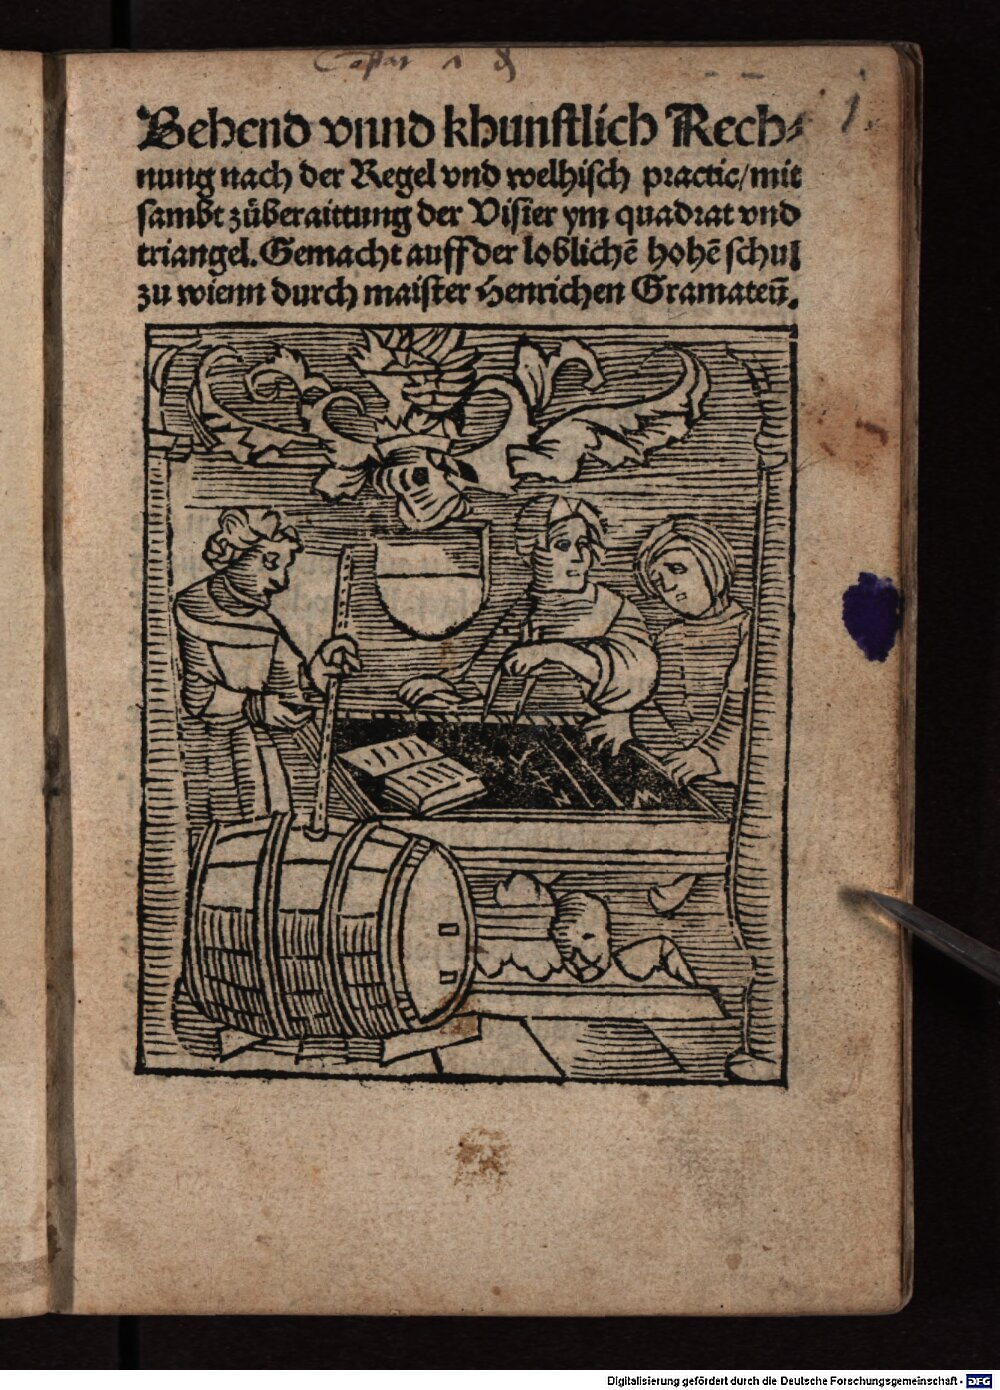 Behend vnnd khunstlich Rech⸗
nung nach der Regel vnd welhisch practic/mit
sambt zůberaittung der Visier ym quadrat vnd
triangel. Gemacht auff der loblichẽ hohẽ schul
zu wienn durch maister Henrichen Gramateũ.
Digitalisierung gefördert durch die Deutsche Forschungsgemeinschaft - DFG